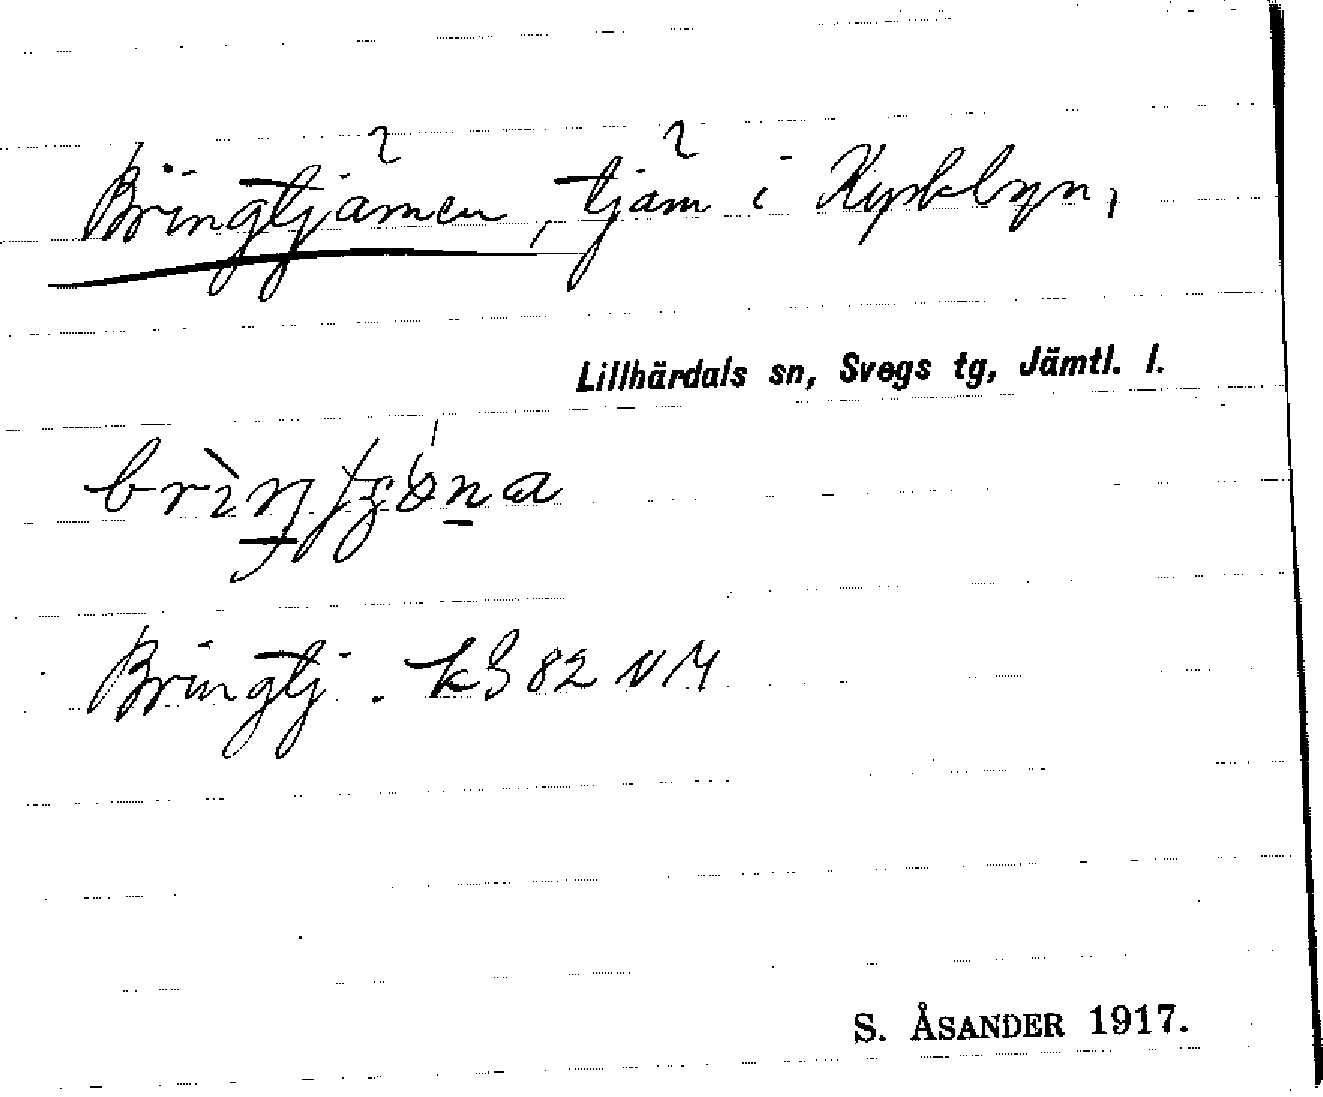 Bringtjärnen, tjärn i Kyrkbyn,
Lillhärdals sn, Svegs tg, Jämtl. l.
Bringtj. k S 82 NV
S. ÅSANDER 1917.